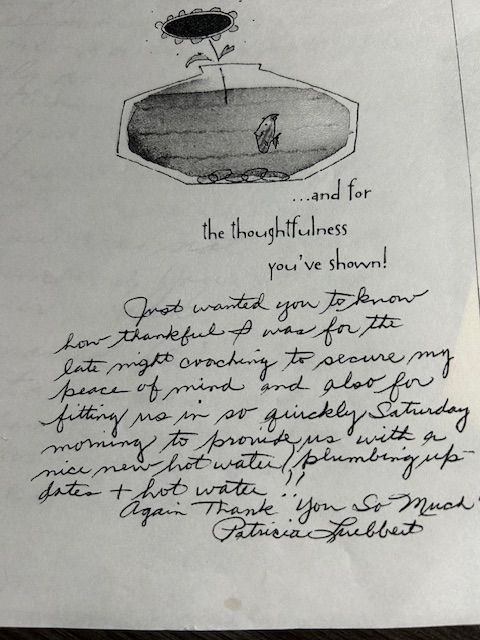 ...and for
the thoughtfulness
you've shown!
Just wanted you to know
how thankful I was for the
late night coaching to secure my
peace of mind and also for
fitting us in so quickly Saturday
morning to provide us with a
nice new hot water, plumbing up-
dates + hot water !!
Again Thank You So Much
Patricia